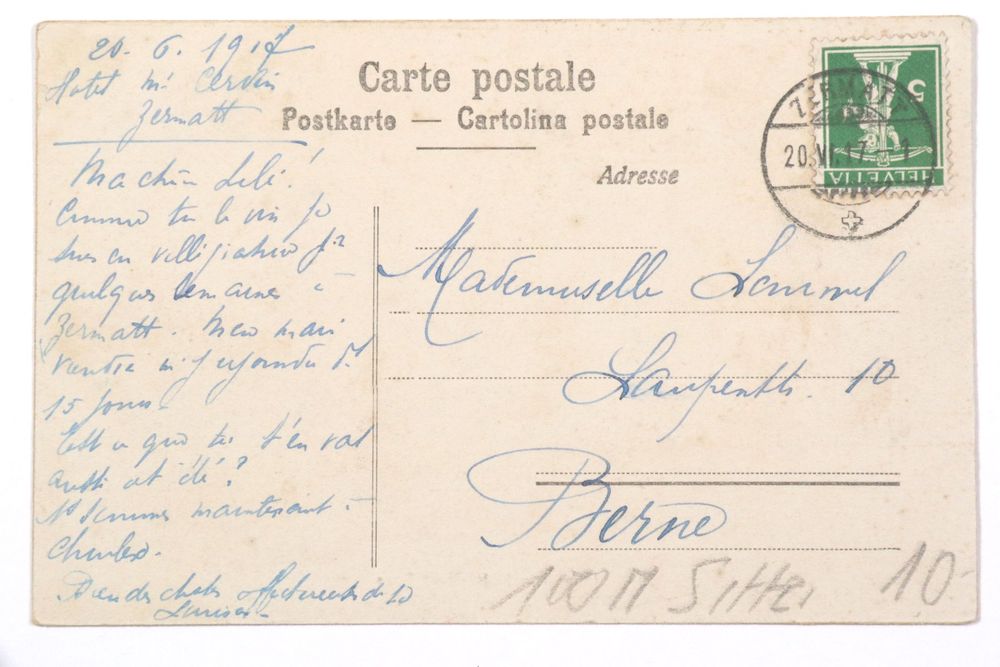 20. 6. 1917
Hotel Mt Cervin
Zermatt
Ma chère Lilé!
Comme tu le vois je
suis en villégiature pr
quelques semaines à
Zermatt. Mon mari
viendra m'y rejoindre ds
15 jours.
Est ce que tu t'en vas
aussi cet été?
Ns sommes maintenant à
choses affectueuses de ta
Carte postale
Postkarte — Cartolina postale
Adresse
Mademoiselle
10
Berne
ZERMATT
20.VI.17. - 1
5
HELVETIA
100 M Sitter 10-